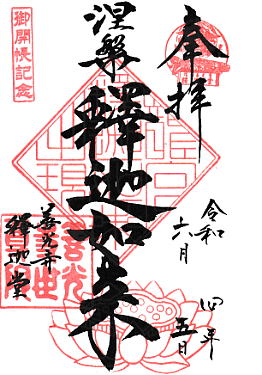 奉拝
令和四年
六月五日
涅槃
釋迦如来
御開帳記念
善光寺
釋迦堂